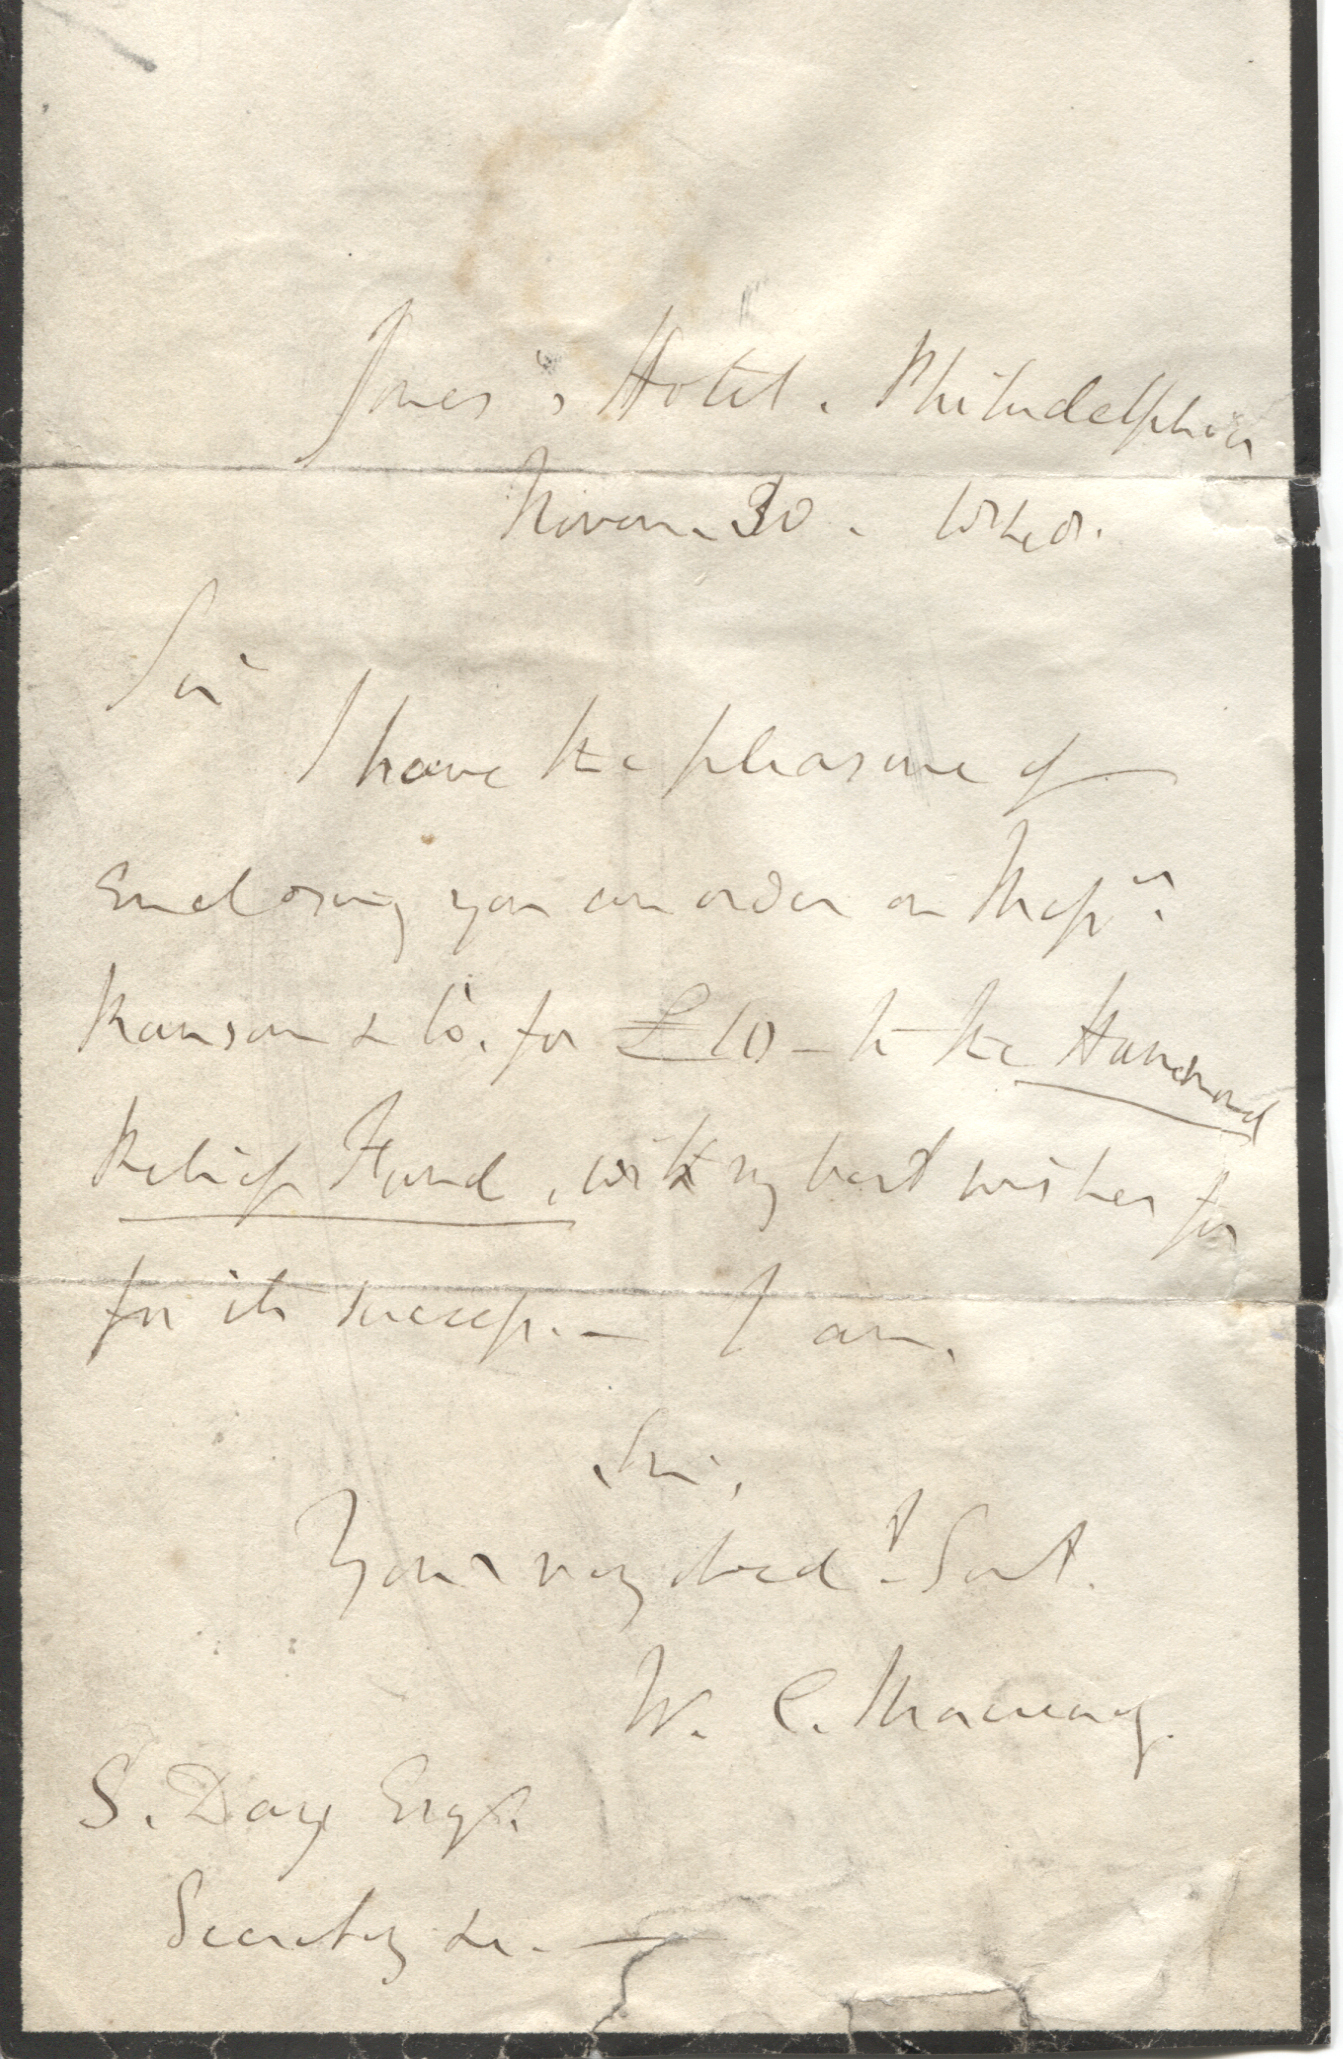 Jones's Hotel. Philadelphia
Novem. 30. Wed.
Sir
I have the pleasure of
enclosing you an order on Messrs.
Ransom & Co. for £10 - to the
Relief Fund, with my best wishes for
for its success. — I am,
Sir,
Your very obed.t Servt.
W. C. Macready.
S. Day Esqr.
Secretary &c. —